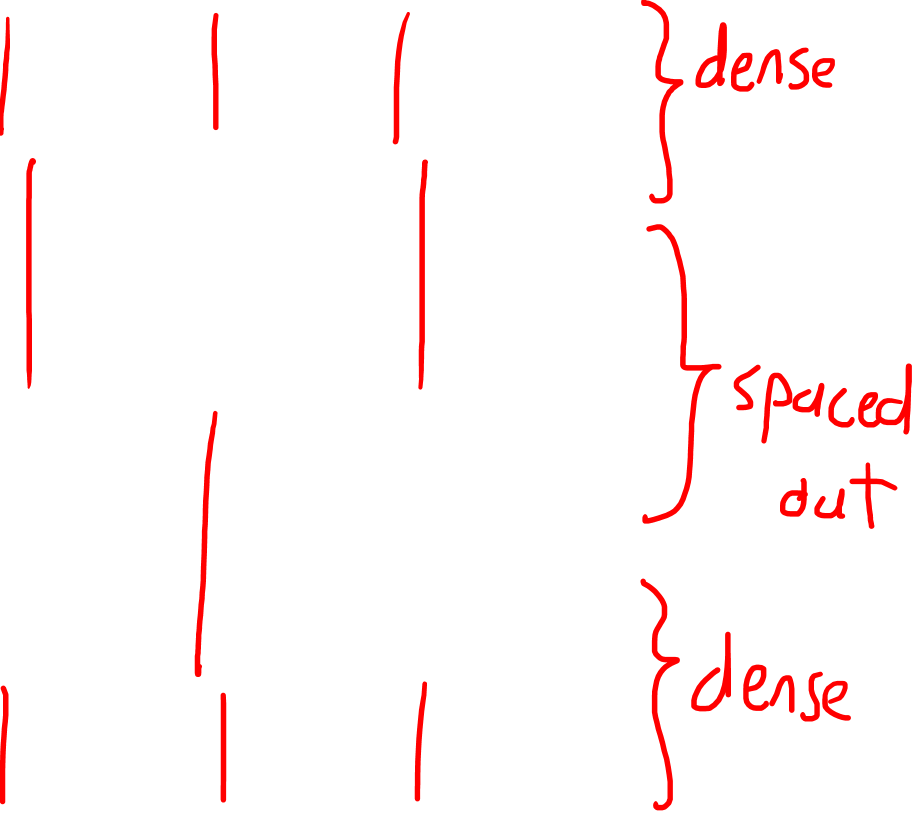 dense
spaced
out
dense